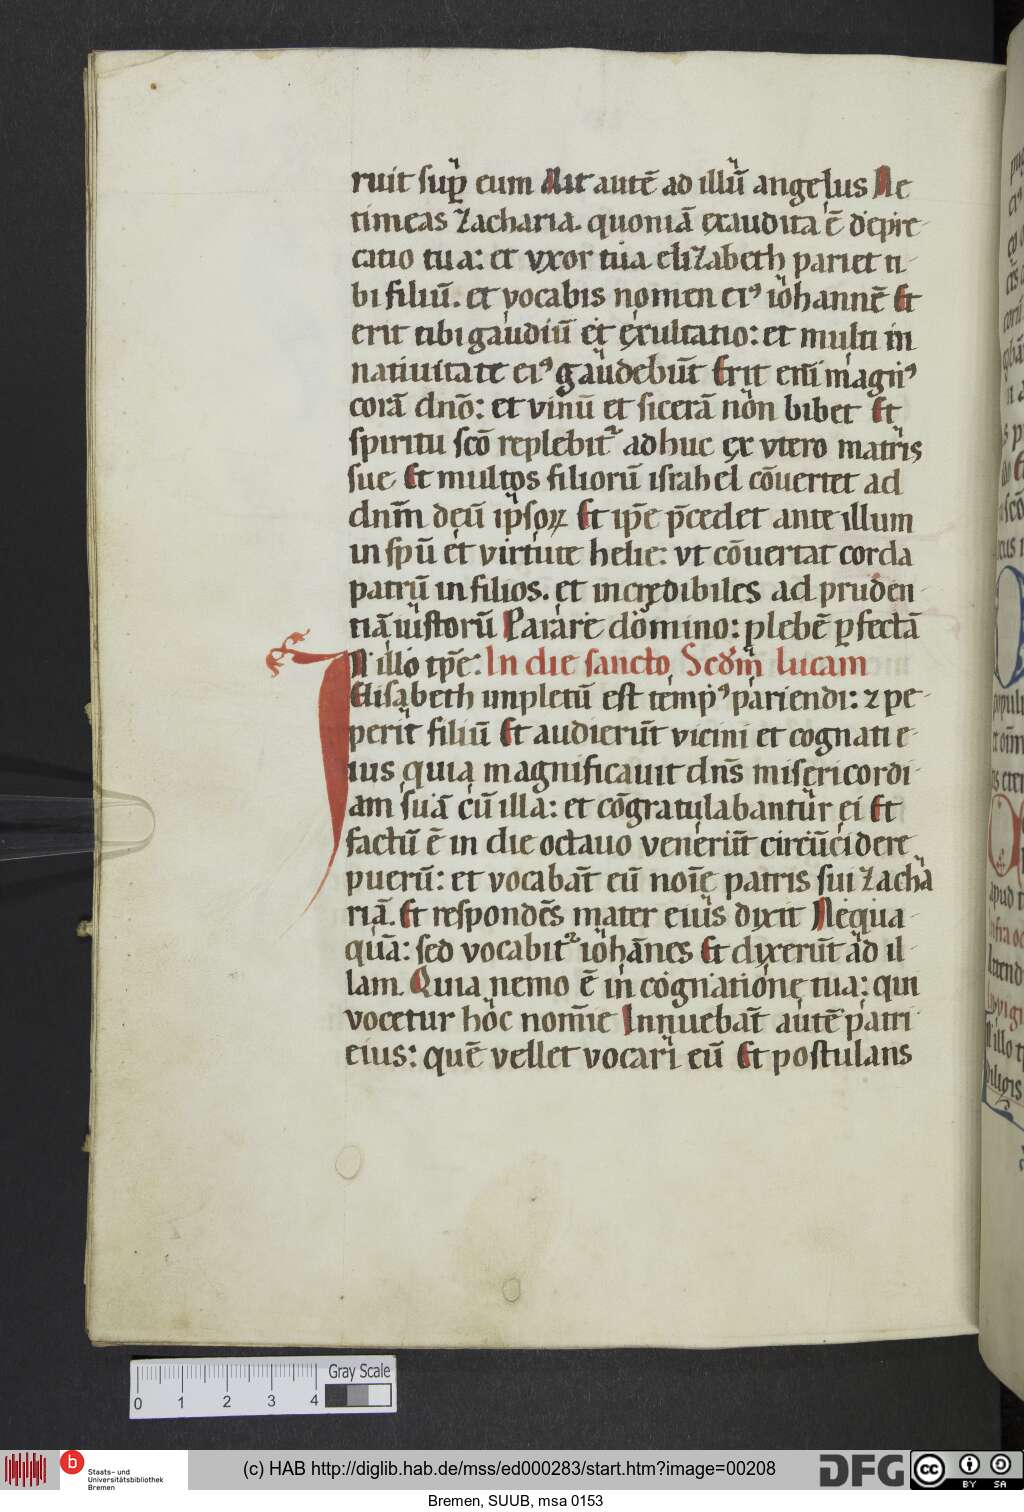 ruit suꝑ eum Ait autē ad illū angelus Ne
timeas zacharia. quoniā exaudita ē depre-
catio tua: et vxor tua elizabeth pariet ti-
bi filiū. et vocabis nomen eiꝰ iohannē Et
erit tibi gaudiū et exultatio: et multi in
natiuitate eiꝰ gaudebūt Erit eni̅ magnꝰ
corā dnō: et vinū et sicerā non bibet Et
spiritu scō replebit᷑ adhuc ex vtero matris
sue Et multos filiorū israhel cōuertet ad
dnm̅ deū ip̅soꝝ Et ip̅e p̅cedet ante illum
in sp̅u et virtute helie: vt cōuertat corda
patrū in filios. et incredibiles ad pruden-
tiā iustorū Parare domino: plebē ꝑfectā
In illo tp̅e: In die sancto Scd̅m lucam
Elisabeth impletū est tempꝰ pariendi: ⁊ pe-
perit filiū Et audierūt vicini et cognati e-
ius quia magnificauit dn̅s misericordi-
am suā cū illa: et cōgratulabantur ei Et
factū ē in die octauo venerūt circūcidere
puerū: et vocabāt eū noīe patris sui zacha-
riā. Et respondēs mater eius dixit Nequa-
quā: sed vocabit᷑ iohānes Et dixerūt ad il-
lam Quia nemo ē in cognatione tua: qui
vocetur hoc nom̅ie Innuebāt autē patri
eius: quē vellet vocari eū Et postulans
0 1 2 3 4
Gray Scale
b
Staats- und
Universitätsbibliothek
Bremen
(c) HAB http://diglib.hab.de/mss/ed000283/start.htm?image=00208
DFG
cc
BY SA
Bremen, SUUB, msa 0153